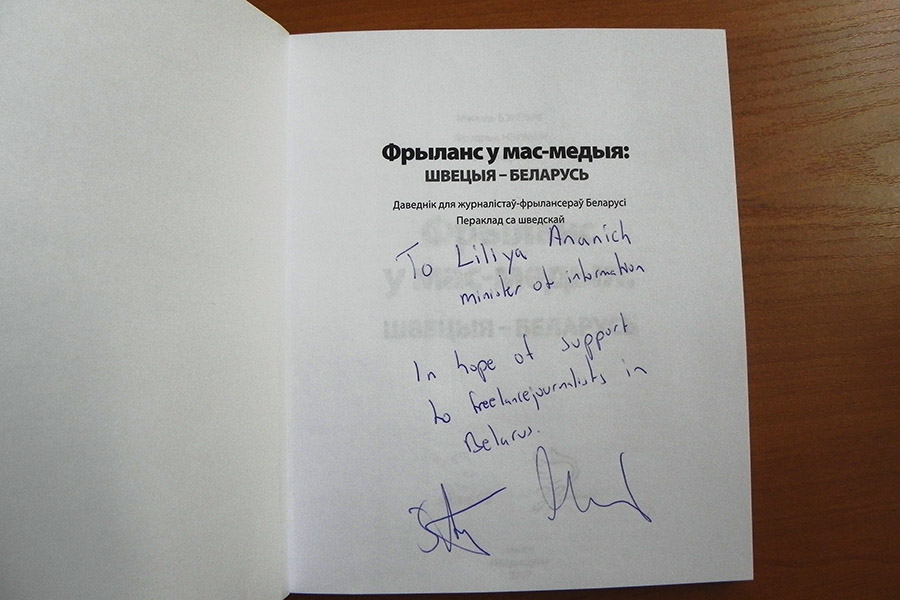 Фрыланс у мас-медыя:
ШВЕЦЫЯ – БЕЛАРУСЬ
Даведнік для журналістаў-фрылансераў Беларусі
Пераклад са шведскай
To Liliya Ananich
minister of information
In hope of support
to freelancejournalists in
Belarus.